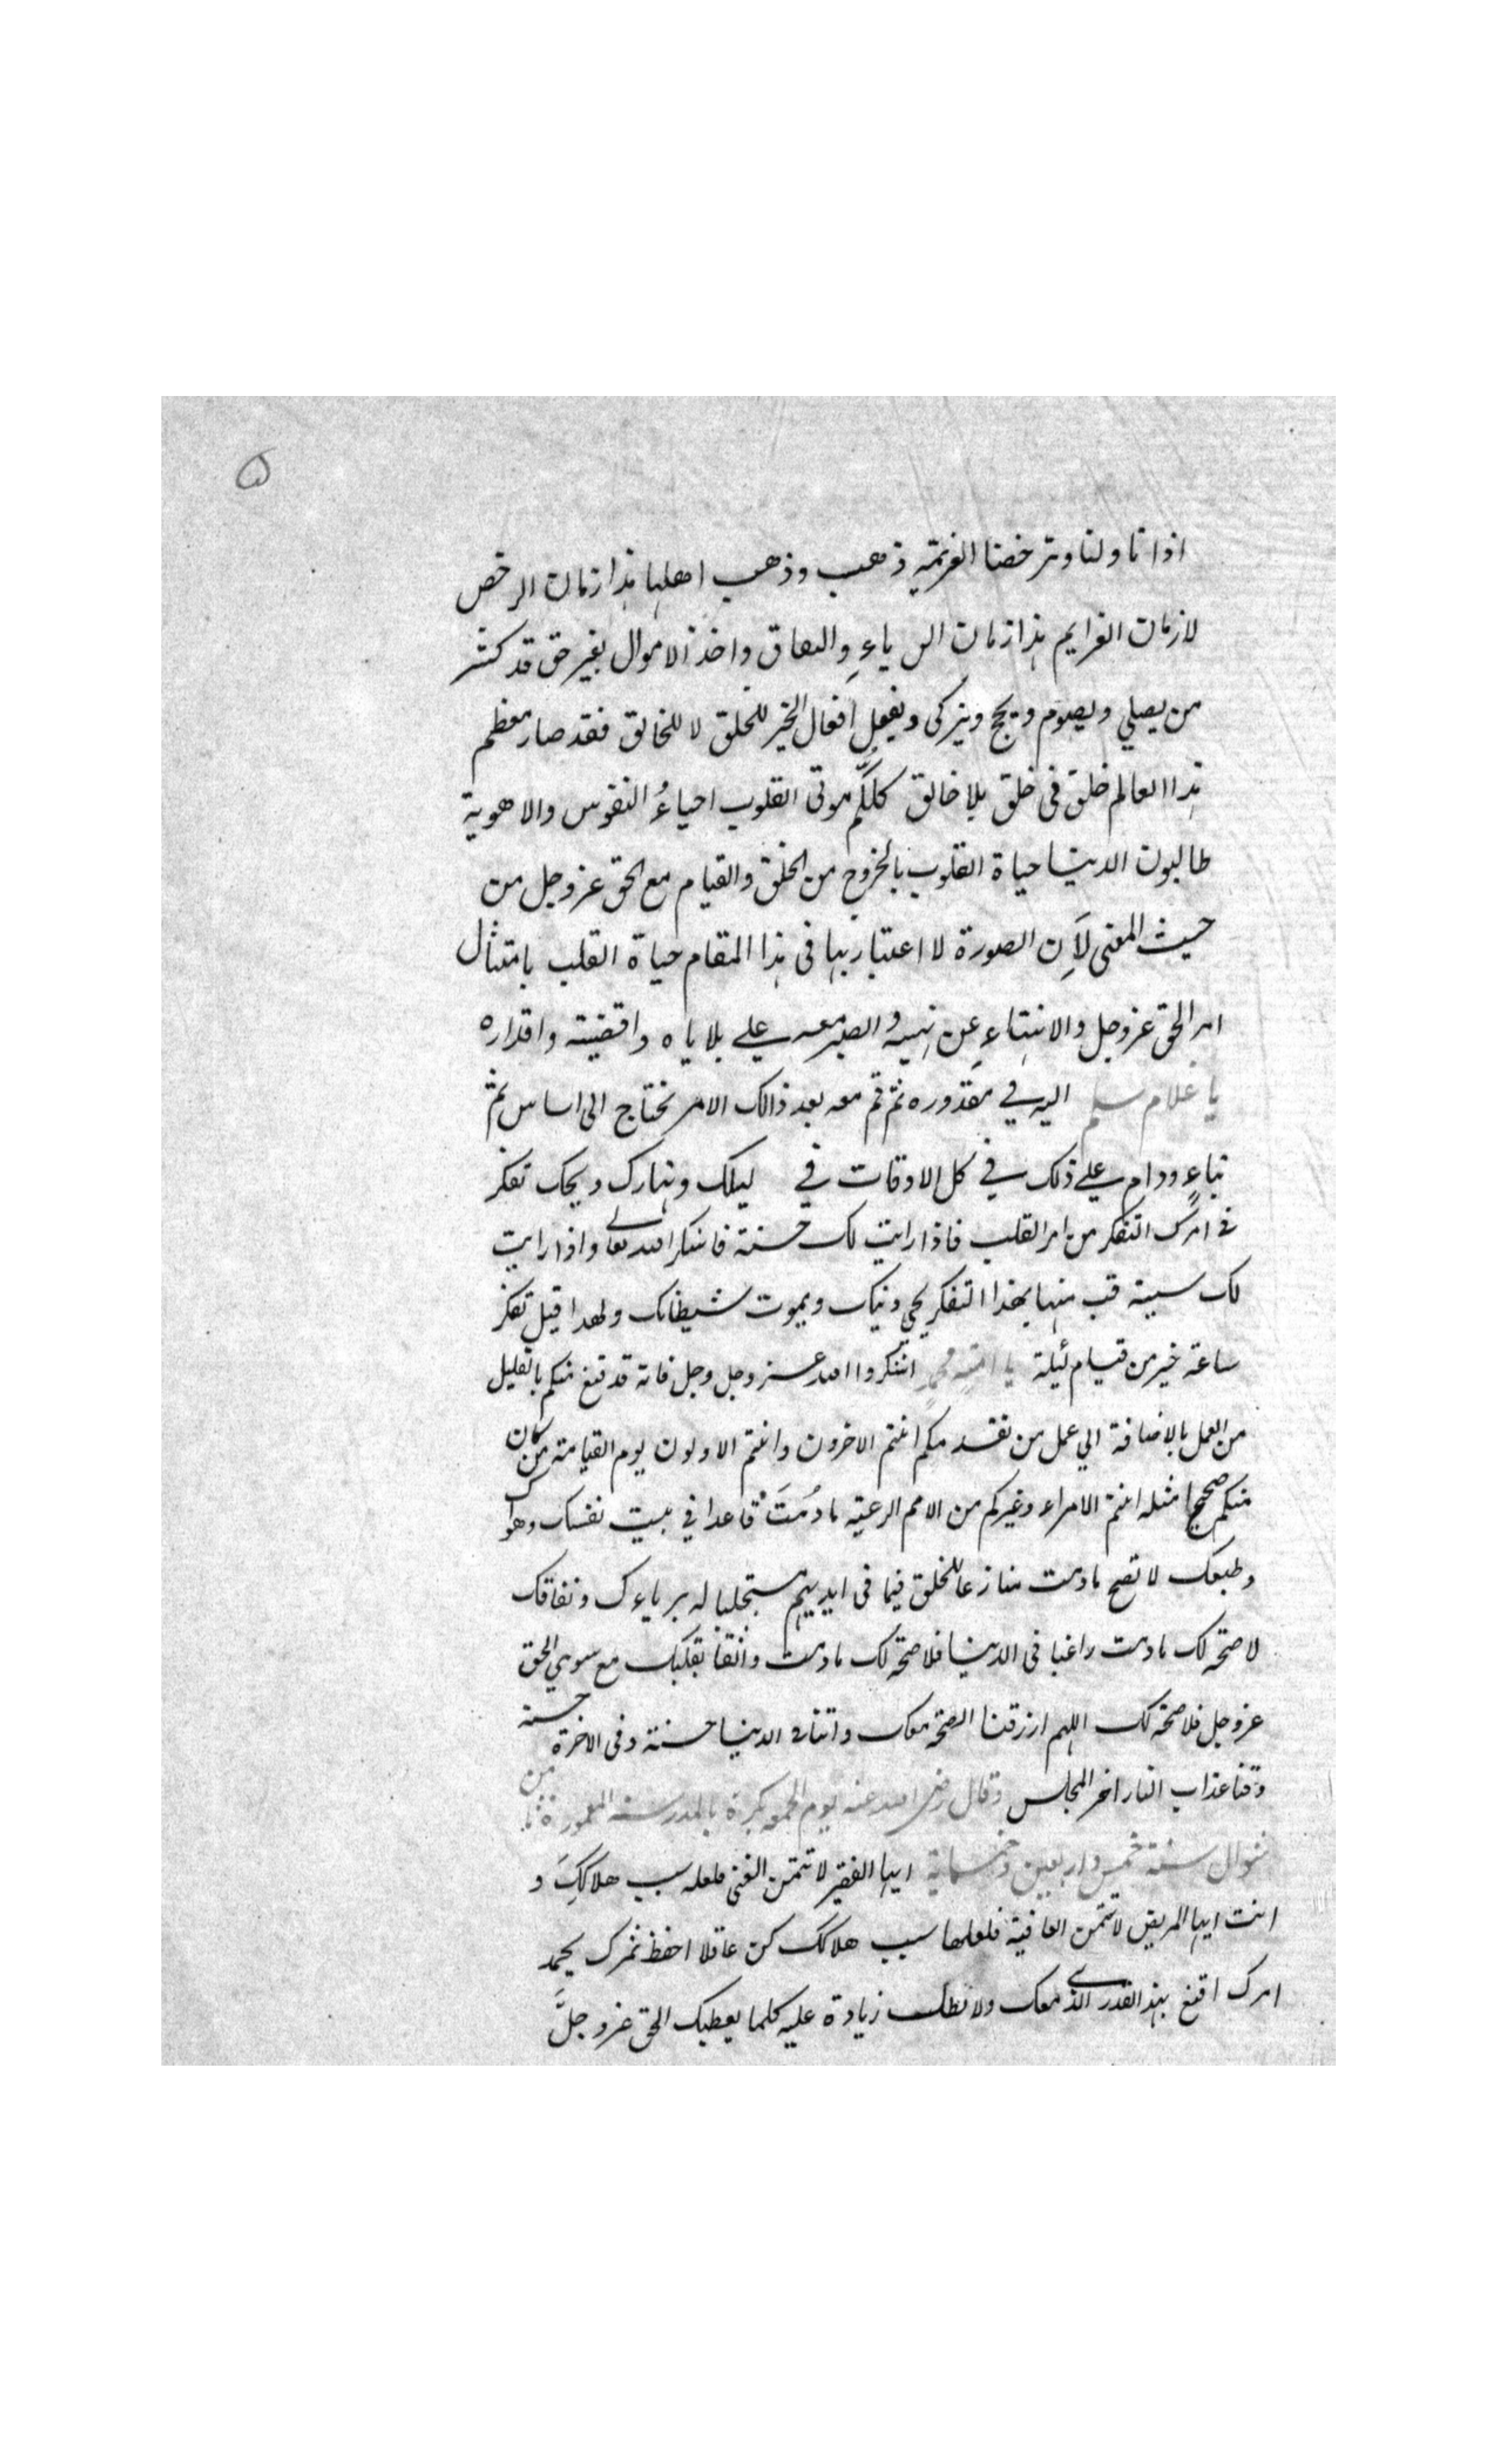 ۵
اذا تاولنا وترخصنا العزيمة ذهب وذهب اهلها هذا زمان الرخص
لا زمان العزايم هذا زمان الرياءِ والنفاق واخذ الاموال بغير حق قد كثر
من يصلي ويصوم ويحج ويزكى ويفعل افعال الخير للخلق لا للخالق فقد صار معظم
هذا العالم خلق فى خلق بلا خالق كلكم موتى القلوب احياءُ النفوس والاهوية
طالبون الدنيا حياة القلوب بالخروج من الخلق والقيام مع الحق عز وجل من
حيث المعنى لأن الصورة لا اعتبار بها فى هذا المقام حياة القلب بامتثال
امر الحق عز وجل والانتهاءِ عن نهيه والصبر معه علي بلاياه واقضيته واقداره
يا غلام سلم اليه في مقدوره ثم قم معه بعد ذالك الامر يحتاج الى اساس ثم
بناءٍ ودام علي ذلك في كل الاوقات في ليلك ونهارك ويحك تفكر
فى امرك التفكر من امر القلب فاذا رايت لك حسنة فاشكر الله تعالى واذا رايت
لك سيىة فتب منها بهذا التفكر يحي دينك ويموت شيطانك ولهذا قيل تفكر
ساعة خير من قيام ليلة يا امة محمد اشكروا الله عز وجل وجل فانه قد قنع منكم بالقليل
من العمل بالاضافة الي عمل من تقدمكم انتم الاخرون وانتم الاولون يوم القيامة من كان
منكم صحيحا مثله انتم الامراء وغيركم من الامم الرعية ما دُمتَ قاعدا في بيت نفسك وهواك
وطبعك لا تصح ما دمت منازعا للخلق فيما فى ايديهم مستجلبا له برياءك ونفاقك
لا صحة لك ما دمت راغبا فى الدنيا فلا صحة لك ما دمت واثقا بقلبك مع سوى الحق
عز وجل فلا صحة لك اللهم ارزقنا الصحة معك واتنا فى الدنيا حسنة وفى الاخرة حسنة
وقنا عذاب النار اخر المجلس وقال رضى الله عنه يوم الجمعة بكرة بالمدرسة المعمورة من
شوال سنة خمس واربعين وخمسماية ايها الفقير لا تتمن الغنى فلعله سبب هلاككَ و
انت ايها المريض لا تتمن العافية فلعلها سبب هلاكك كن عاقلا احفظ ثمرك يحمد
امرك اقنع بهذا القدر الذى معك ولا تطلب زيادة عليه كلما يعطيك الحق عز وجلَّ